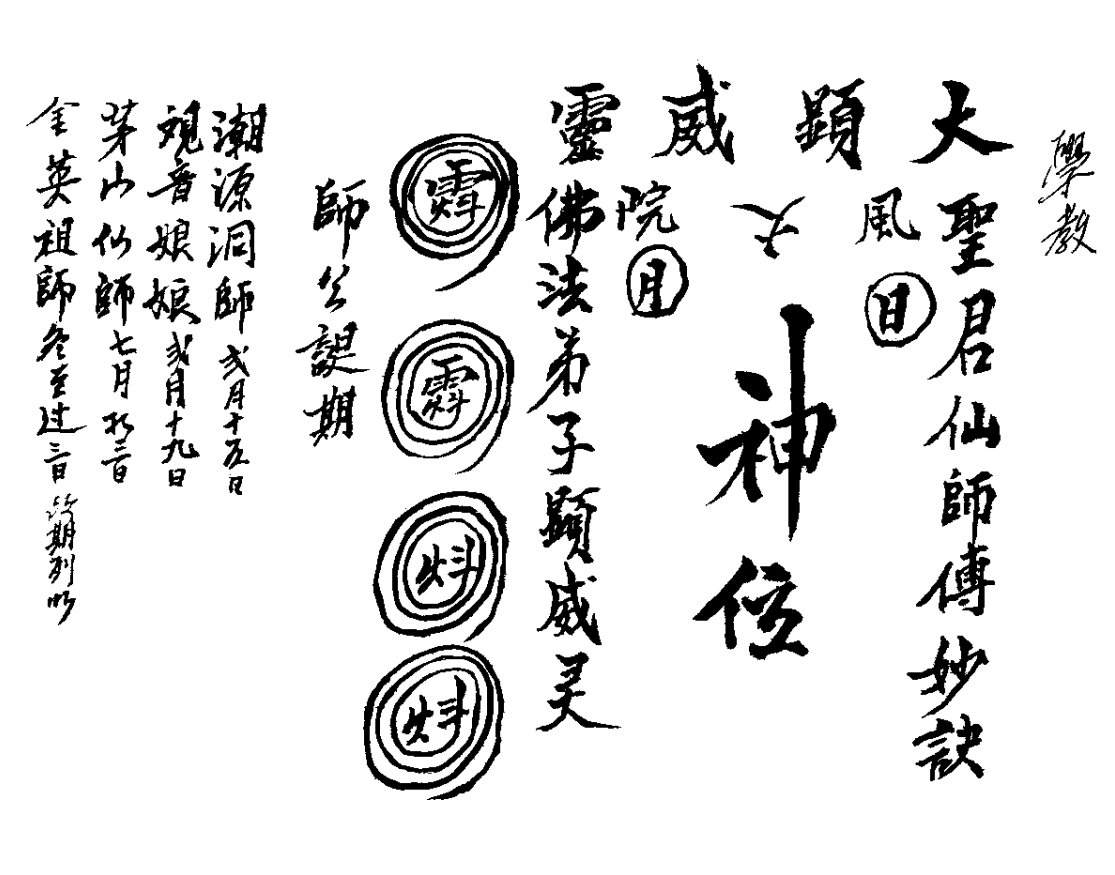 學教
大顯威靈
聖君仙師傅妙訣
風
日
六
神位
院
月
佛法弟子顯威灵
師公誔期
潮源洞師弍月十五日
观音娘娘弍月十九日
茅山仙師七月初三日
金英祖師冬至过三日
期列